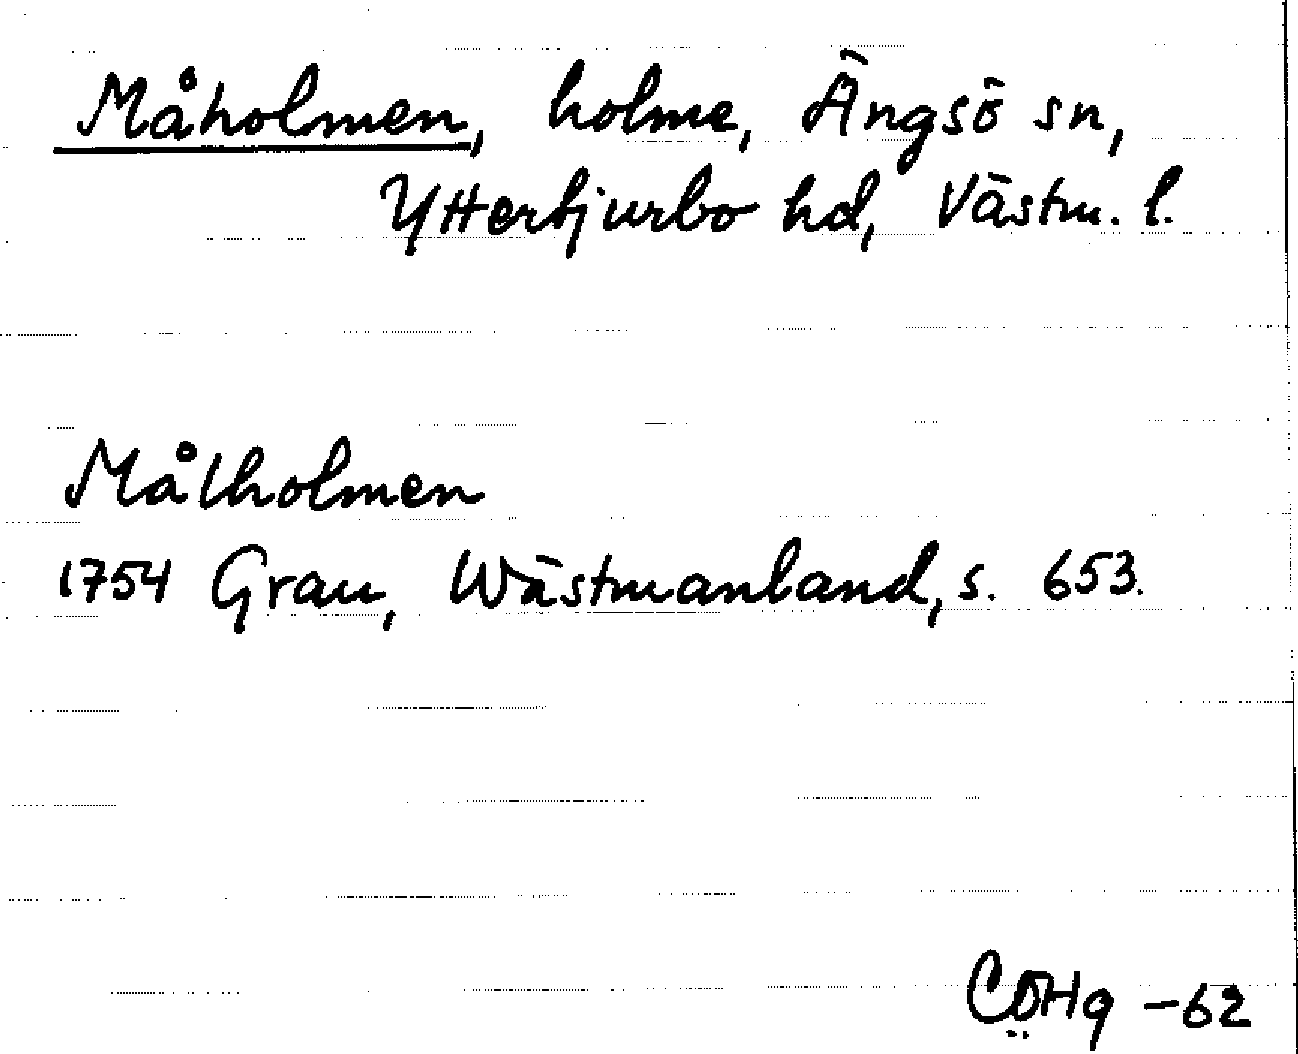 Måholmen, holme, Ängsö sn,
Ytterbjurbo hd, Västm. l.
Målholmen
1754 Grau, Wästmanland, s. 653.
CÖHg -62